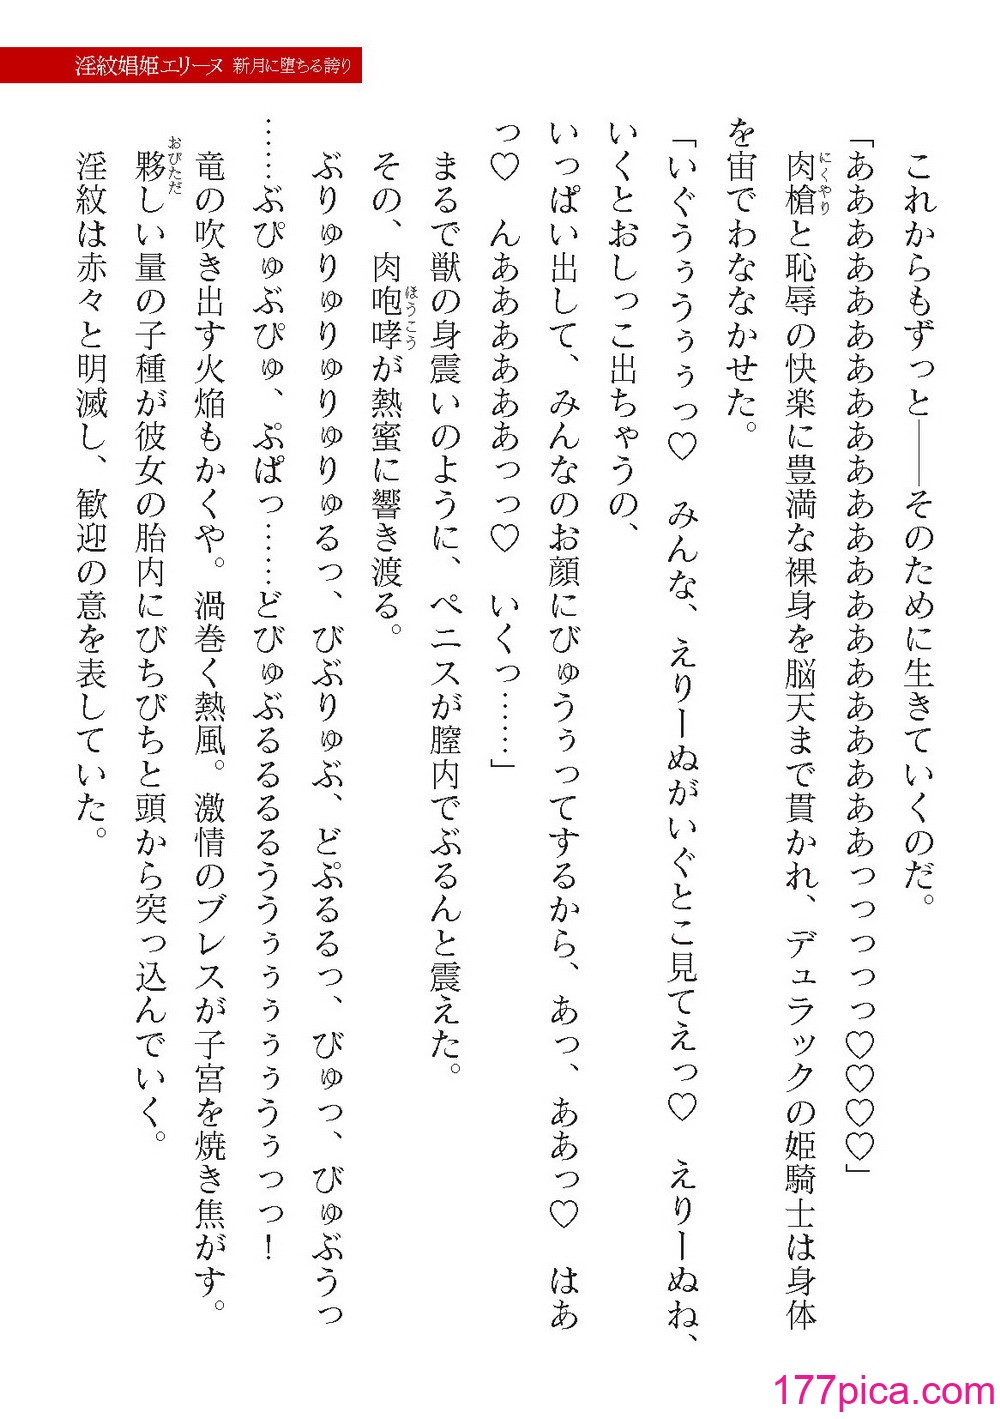 淫紋娼姫エリーヌ 新月に堕ちる誇り
これからもずっと――そのために生きていくのだ。
「あああああああああああああああああああああっっっっっ♡♡♡♡」
肉槍と恥辱の快楽に豊満な裸身を脳天まで貫かれ、デュラックの姫騎士は身体
にくやり
を宙でわななかせた。
「いぐうぅうぅぅっ♡　みんな、えりーぬがいぐとこ見てえっ♡　えりーぬね、
いくとおしっこ出ちゃうの、
いっぱい出して、みんなのお顔にびゅうぅってするから、あっ、ああっ♡　はあ
っ♡　んああああああっっ♡　いくっ……」
まるで獣の身震いのように、ペニスが膣内でぶるんと震えた。
その、肉咆哮が熱蜜に響き渡る。
ほうこう
ぶりゅりゅりゅりゅりゅるっ、びぶりゅぶ、どぷるるっ、びゅっ、びゅぶうっ
……ぶぴゅぶぴゅ、ぷぱっ……どびゅぶるるるるううぅぅぅぅぅうぅっっ！
竜の吹き出す火焔もかくや。渦巻く熱風。激情のブレスが子宮を焼き焦がす。
夥しい量の子種が彼女の胎内にびちびちと頭から突っ込んでいく。
おびただ
淫紋は赤々と明滅し、歓迎の意を表していた。
177pica.com